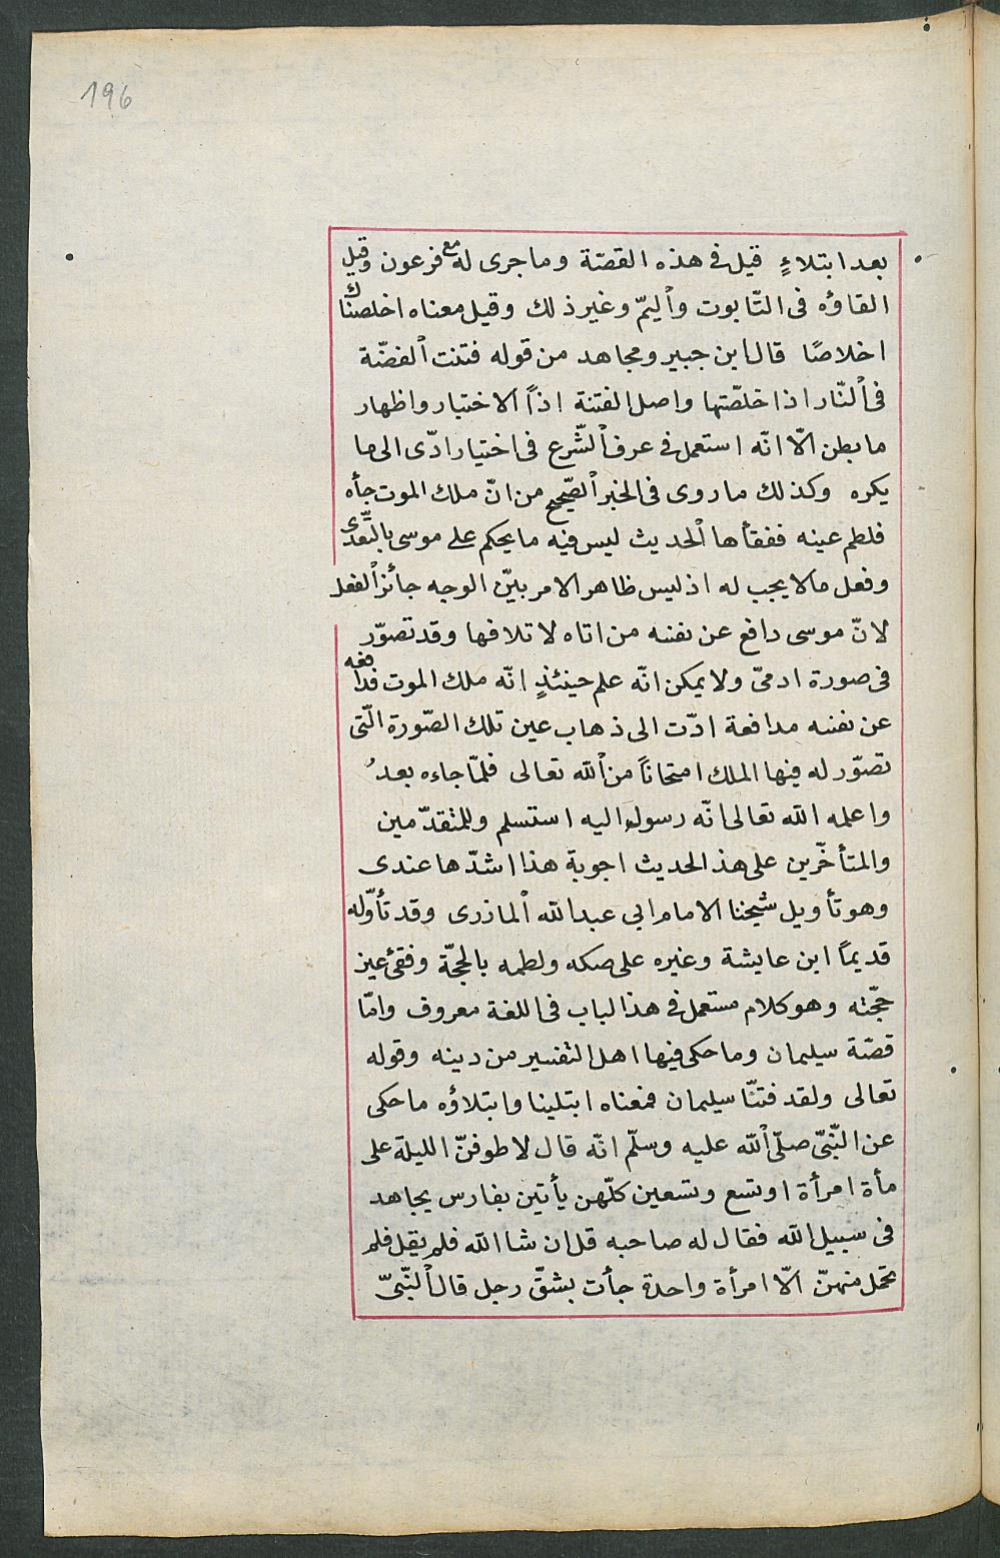 196
بعد ابتلاءٍ قيل فى هذه القصّة وما جرى له مع فرعون وقيل
القاؤه فى التّابوت واليمّ وغير ذلك وقيل معناه اخلصناك
اخلاصًا قال ابن جبير ومجاهد من قوله فتنت الفضّة
فى النّار اذا خلّصتها واصل الفتنة اذاً الاختبار واظهار
ما بطن الّا انّه استعمل فى عرف الشّرع فى اختبار ادّى الى ما
يكره وكذلك ما روى فى الخبر الصّحيح من انّ ملك الموت جأه
فلطم عينه ففقأها الحديث ليس فيه ما يحكم على موسى بالتّعدّى
وفعل مالا يجب له اذ ليس ظاهر الامر بيّن الوجه جائز الفعل
لانّ موسى دافع عن نفسه من اتاه لاتلافها وقد تصوّر
فى صورة ادمىّ ولا يمكن انّه علم حينئذٍ انّه ملك الموت فدافعه
عن نفسه مدافعة ادّت الى ذهاب عين تلك الصّورة الّتى
تصوّر له فيها الملك امتحاناً من الله تعالى فلمّا جاءه بعدُ
واعلمه الله تعالى انّه رسوله اليه استسلم وللمتقدّمين
والمتأخّرين على هذ الحديث اجوبة هذا اشدّها عندى
وهو تأويل شيخنا الامام ابى عبد الله المازرى وقد تأوّله
قديماً ابن عايشة وغيره على صكه ولطمه بالحجّة وفقئ عين
حجّته وهو كلام مستعمل فى هذ الباب فى اللغة معروف وامّا
قصّة سليمان وما حكى فيها اهل التفسير من دينه وقوله
تعالى ولقد فتنّا سليمان فمعناه ابتلينا وابتلاؤه ما حكى
عن النّبىّ صلّى الله عليه وسلّم انّه قال لاطوفنّ الليلة على
مأة امرأة او تسع وتسعين كلّهن يأتين بفارس يجاهد
فى سبيل الله فقال له صاحبه قل ان شا الله فلم يقل فلم
تحمل منهنّ الّا امرأة واحدة جأت بشقّ رجل قال النّبىّ